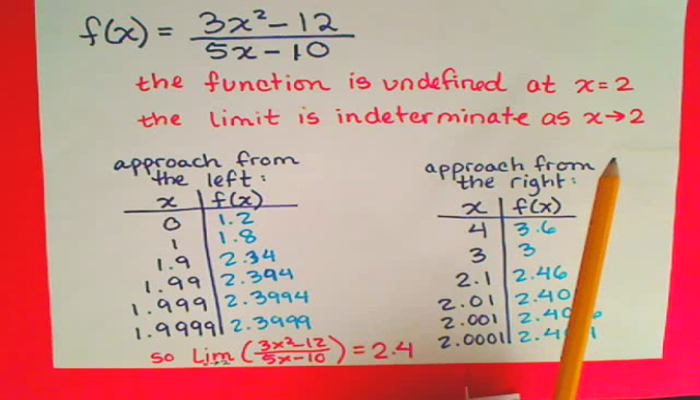 f(x) = 3x²-12 / 5x-10
the function is undefined at x=2
the limit is indeterminate as x→2
approach from
the left:
x | f(x)
0 | 1.2
1 | 1.8
1.9 | 2.34
1.99 | 2.394
1.999 | 2.3994
1.9999 | 2.3999
approach from
the right:
x | f(x)
4 | 3.6
3 | 3
2.1 | 2.46
2.01 | 2.40
2.001 | 2.40
2.0001 | 2.4
so Lim (3x²-12 / 5x-10) = 2.4